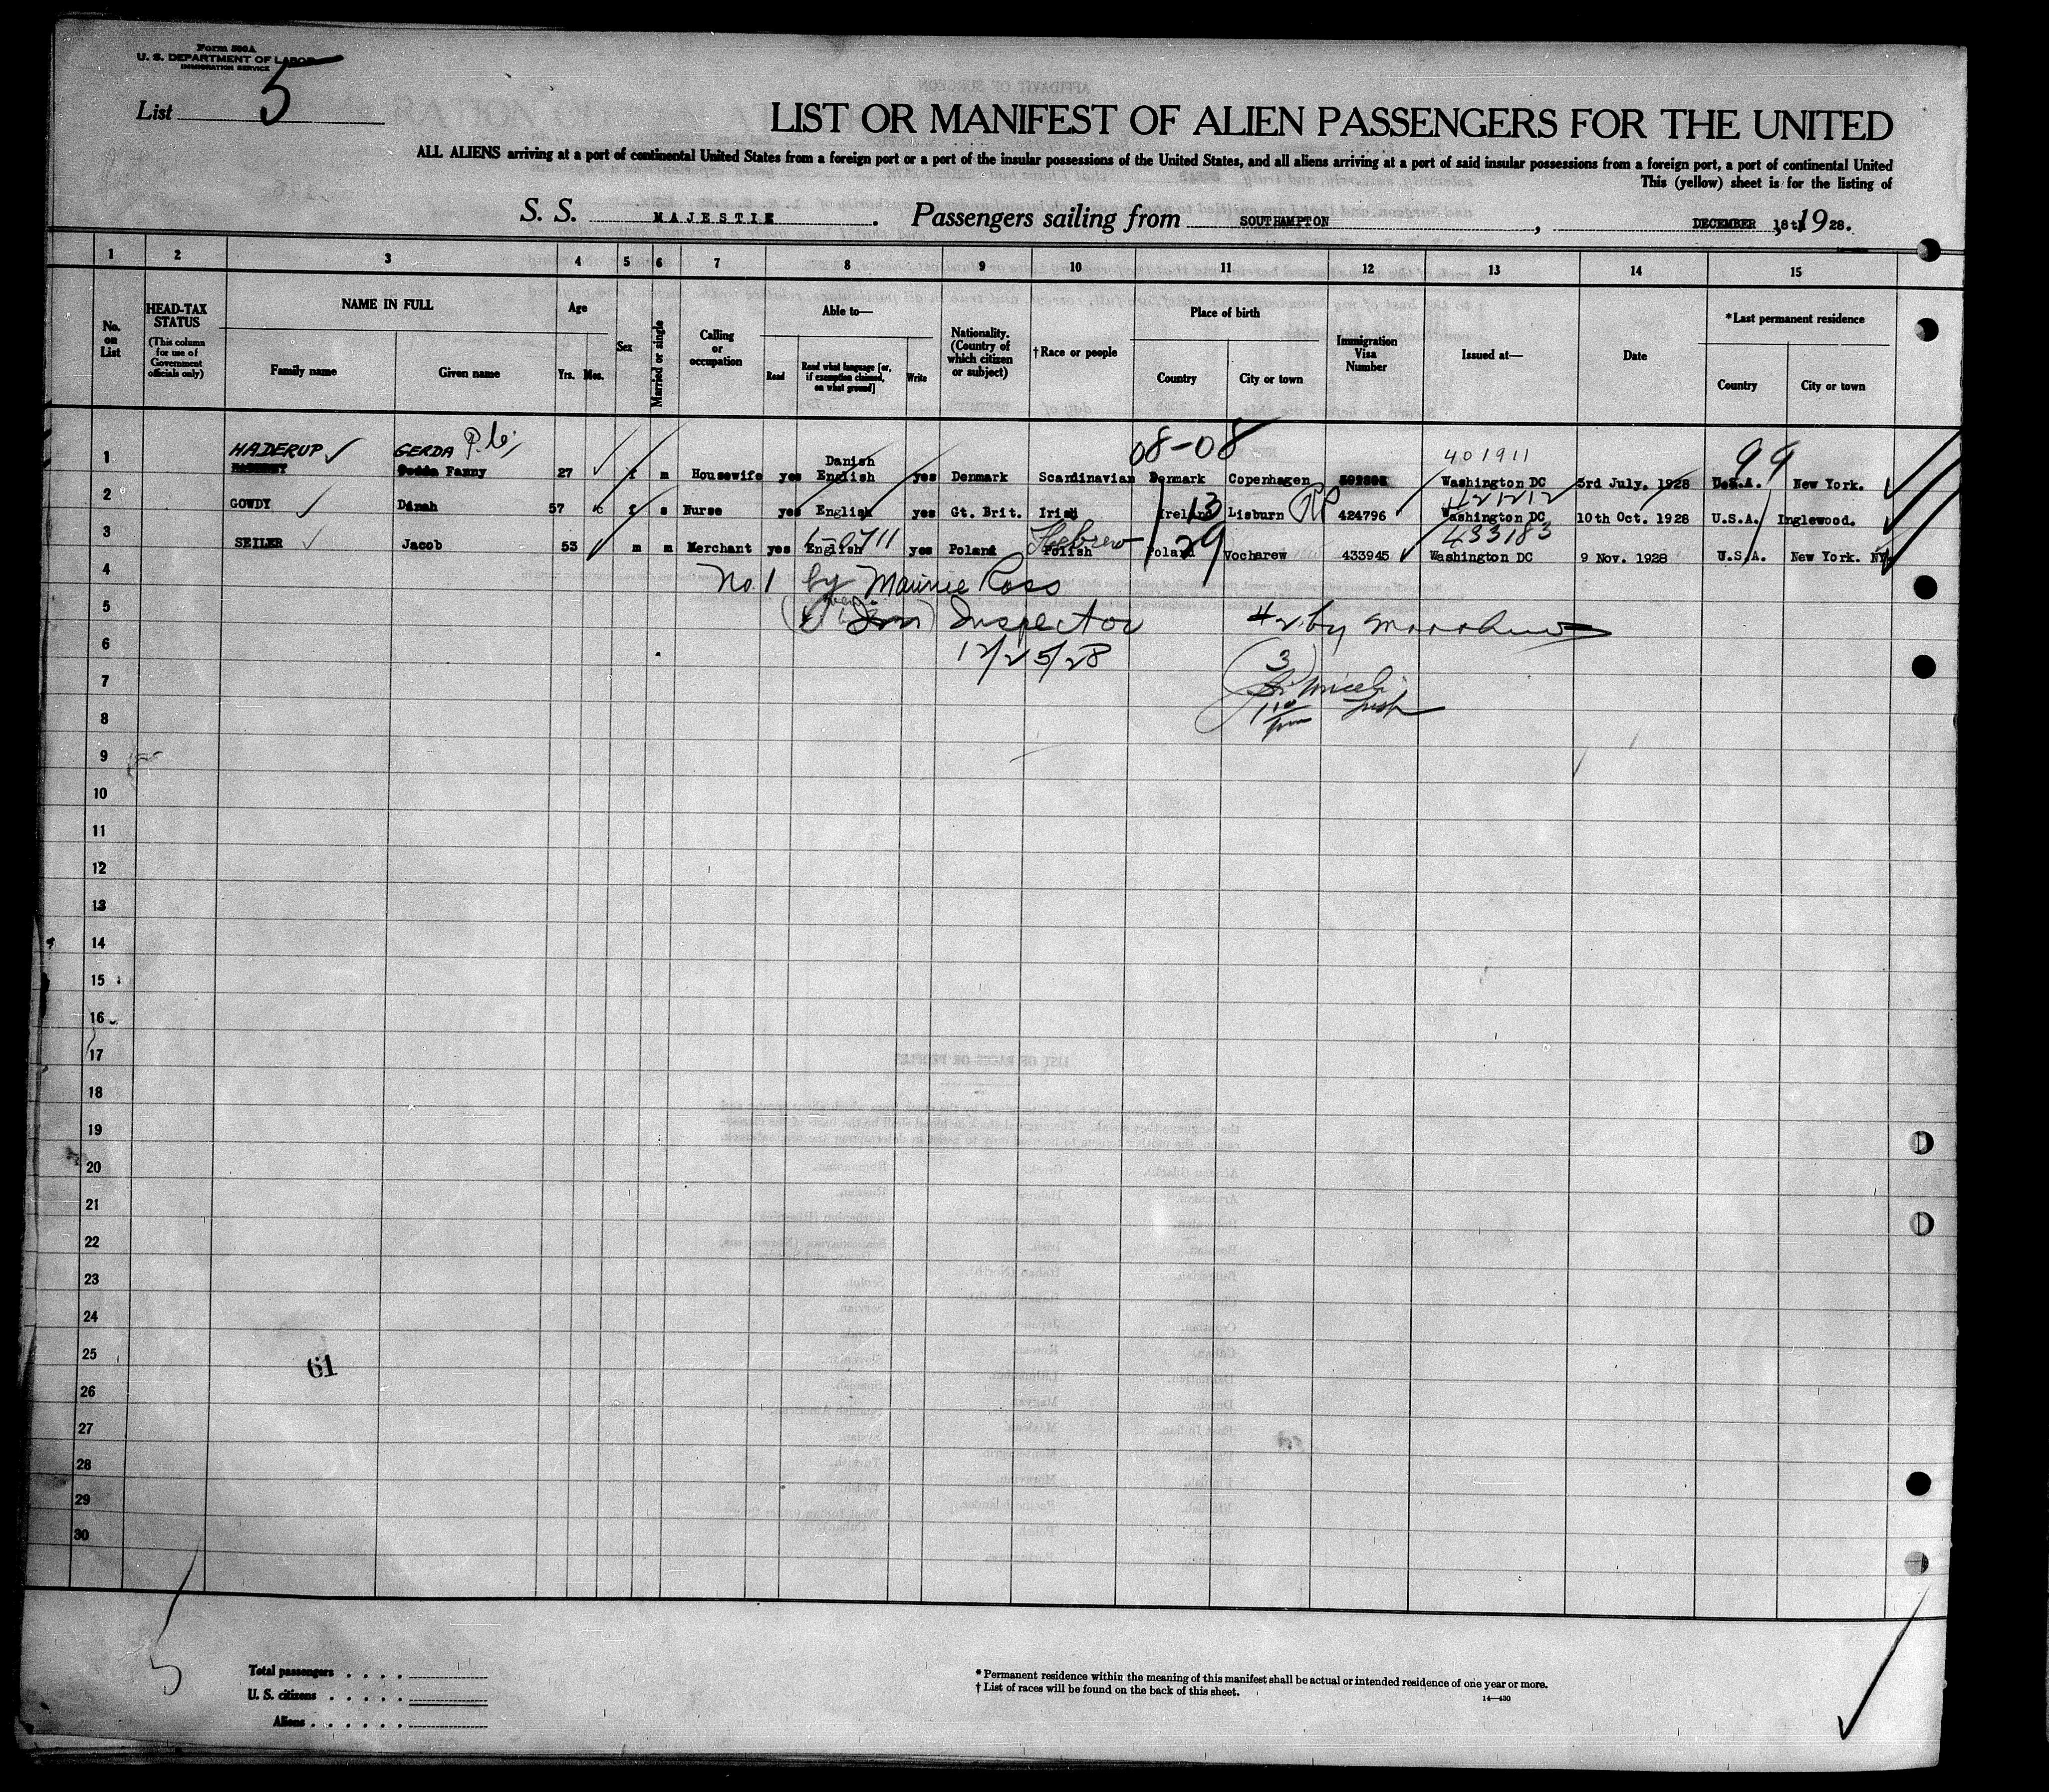 Form 500A
U. S. DEPARTMENT OF LABOR
IMMIGRATION SERVICE
List 5
LIST OR MANIFEST OF ALIEN PASSENGERS FOR THE UNITED
ALL ALIENS arriving at a port of continental United States from a foreign port or a port of the insular possessions of the United States, and all aliens arriving at a port of said insular possessions from a foreign port, a port of continental United
This (yellow) sheet is for the listing of
S. S. MAJESTIC. Passengers sailing from SOUTHAMPTON, DECEMBER 18th, 1928.
1 2 3 4 5 6 7 8 9 10 11 12 13 14 15
No. on List
HEAD-TAX STATUS (This column for use of Government officials only)
NAME IN FULL
Family name Given name
Age
Yrs. Mos.
Sex
Married or single
Calling or occupation
Able to—
Read Read what language [or, if exemption claimed, on what ground] Write
Nationality. (Country of which citizen or subject)
†Race or people
Place of birth
Country City or town
Immigration Visa Number
Issued at—
Date
*Last permanent residence
Country City or town
HADERUP GERDA Danish 08-08 401911 99
1 Fanny 27 f m Housewife yes English yes Denmark Scandinavian Denmark Copenhagen Washington DC 3rd July. 1928 U.S.A. New York.
2 GOWDY Dinah 57 f s Nurse yes English yes Gt. Brit. Irish Ireland 13 Lisburn 424796 Washington DC 10th Oct. 1928 U.S.A. Inglewood.
Hebrew 29 433183
3 SEILER Jacob 53 m m Merchant yes English yes Poland Polish Poland Vocharew 433945 Washington DC 9 Nov. 1928 U.S.A. New York. NY
4 No. 1 by Maurice Ross
5 Inspector #2 by
6 12/25/28 3
7
8
9
10
11
12
13
14
15
16
17
18
19
20
21
22
23
24
25
61
26
27
28
29
30
5
Total passengers . . . .
U. S. citizens . . . . .
Aliens . . . . . .
* Permanent residence within the meaning of this manifest shall be actual or intended residence of one year or more.
† List of races will be found on the back of this sheet.
14—430